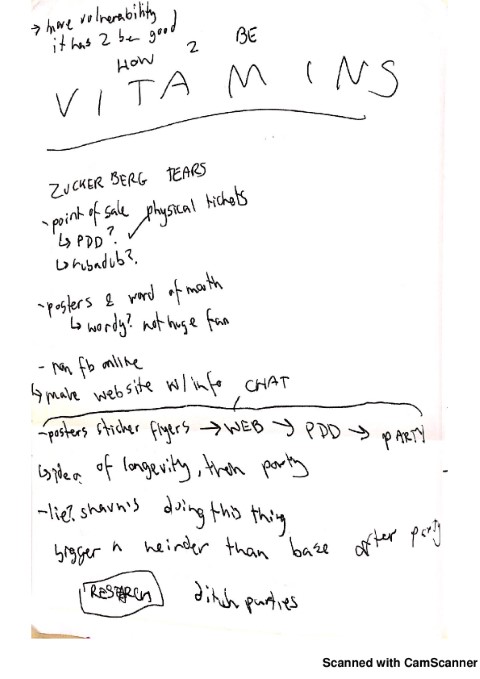 → more vulnerability
it has 2 be good
HOW 2 BE
VITAMINS
ZUCKERBERG TEARS
- point of sale physical tickets
↳ PDD? ✓
↳ rubadub?
- posters & word of mouth
↳ wordy? not huge fan
- non fb online
↳ make website w/ info CHAT
- posters sticker flyers → WEB → PDD → PARTY
↳ idea of longevity, then party
- lie? shawn's doing this thing
bigger n weirder than base after party
RESEARCH ditch parties
Scanned with CamScanner